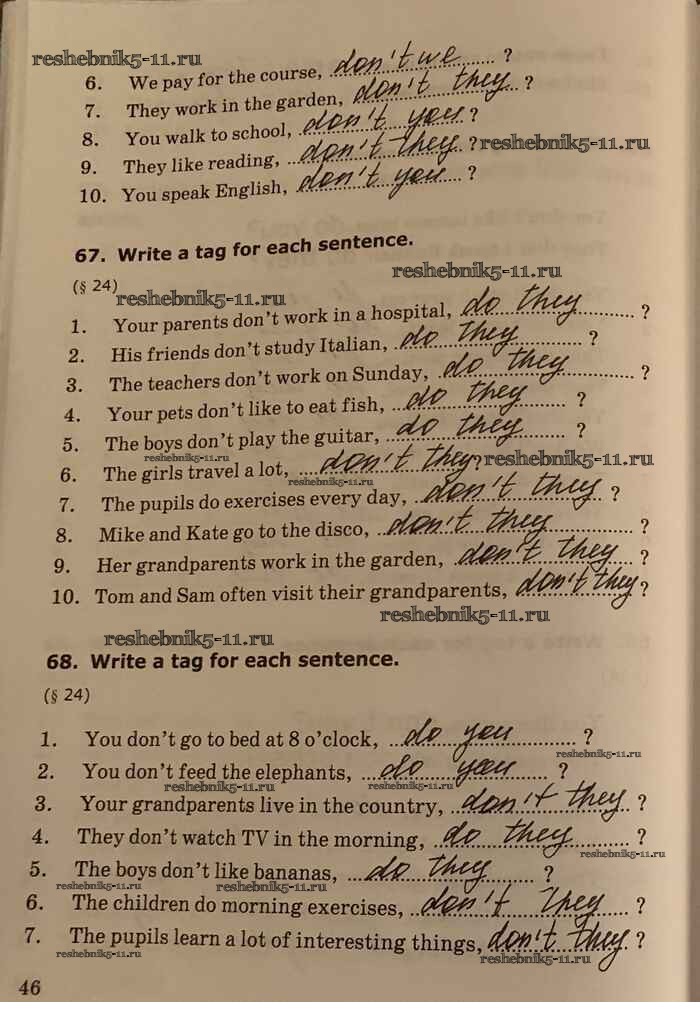 reshebnik5-11.ru
6. We pay for the course, don't we ?
7. They work in the garden, don't they ?
8. You walk to school, don't you ?
9. They like reading, don't they ? reshebnik5-11.ru
10. You speak English, don't you ?
67. Write a tag for each sentence.
reshebnik5-11.ru
(§ 24) reshebnik5-11.ru
1. Your parents don't work in a hospital, do they ?
2. His friends don't study Italian, do they ?
3. The teachers don't work on Sunday, do they ?
4. Your pets don't like to eat fish, do they ?
5. The boys don't play the guitar, do they ?
reshebnik5-11.ru
6. The girls travel a lot, don't they ? reshebnik5-11.ru
reshebnik5-11.ru
7. The pupils do exercises every day, don't they ?
8. Mike and Kate go to the disco, don't they ?
9. Her grandparents work in the garden, don't they ?
10. Tom and Sam often visit their grandparents, don't they ?
reshebnik5-11.ru
reshebnik5-11.ru
68. Write a tag for each sentence.
(§ 24)
1. You don't go to bed at 8 o'clock, do you ?
reshebnik5-11.ru
2. You don't feed the elephants, do you ?
reshebnik5-11.ru
3. Your grandparents live in the country, don't they ?
4. They don't watch TV in the morning, do they ?
reshebnik5-11.ru
5. The boys don't like bananas, do they ?
reshebnik5-11.ru reshebnik5-11.ru
6. The children do morning exercises, don't they ?
7. The pupils learn a lot of interesting things, don't they ?
reshebnik5-11.ru reshebnik5-11.ru
46